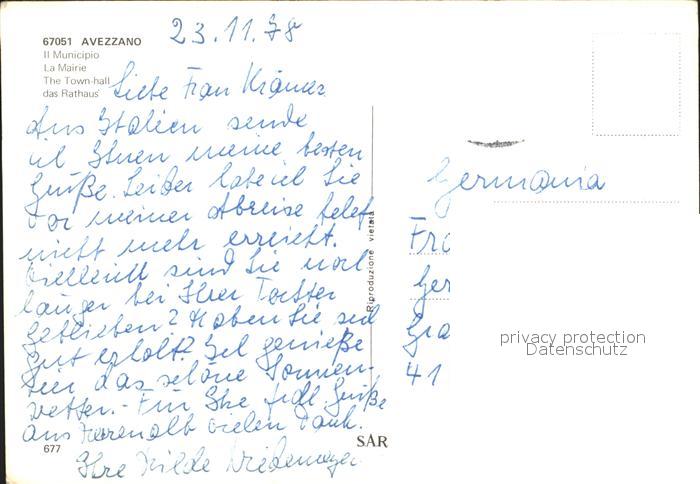 67051 AVEZZANO
Il Municipio
La Mairie
The Town-hall
das Rathaus
23.11.78
Liebe Frau Krämer
Aus Italien sende
ich Ihnen meine besten
Grüße. Leider habe ich Sie
vor meiner Abreise telef.
nicht mehr erreicht.
Vielleicht sind Sie noch
länger bei Ihrer Tochter
geblieben? Haben Sie sich
gut erholt? Ich genieße
hier das schöne Sonnen-
wetter. - Für Ihre frdl. Grüße
aus Herrenalb vielen Dank.
Ihre Hilde
677
SAR
Riproduzione vietata
Germania
Fra
Ger
Gra
41
privacy protection
Datenschutz